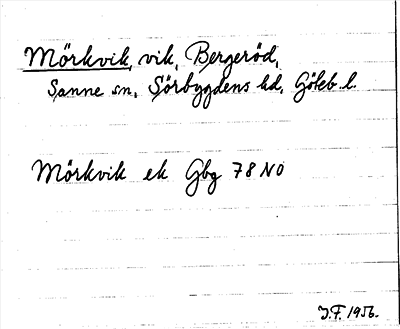 Mörkvik, vik, Bergeröd,
Sanne sn, Sörbygdens hd, Göteb. l.
Mörkvik ek Gbg 78 NO
J.F. 1956.